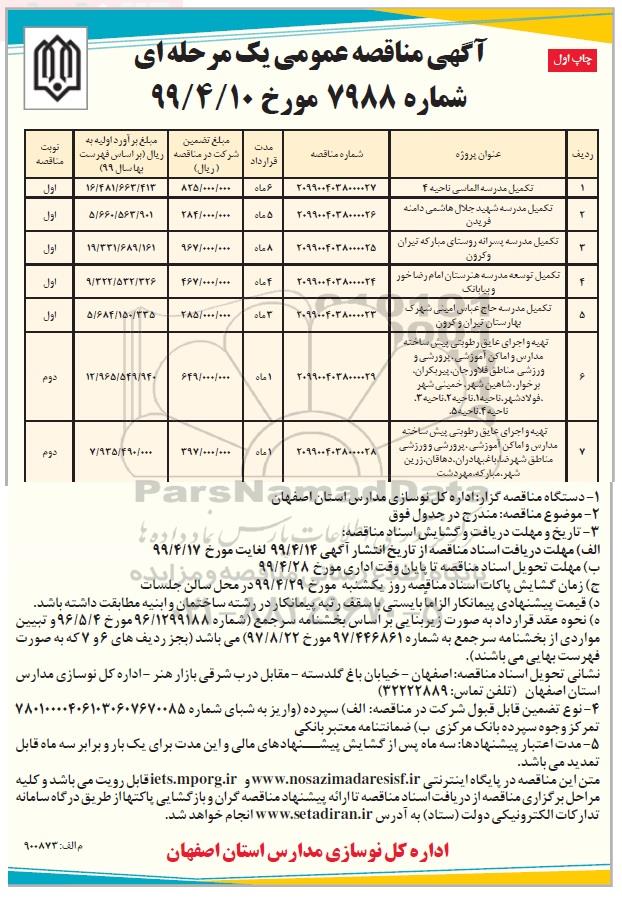 آگهی مناقصه عمومی یک مرحله ای
چاپ اول
شماره ۷۹۸۸ مورخ ۹۹/۴/۱۰
ردیف عنوان پروژه شماره مناقصه مدت قرارداد مبلغ تضمین شرکت در مناقصه (ریال) مبلغ برآورد اولیه به ریال (بر اساس فهرست بها سال ۹۹) نوبت مناقصه
۱ تکمیل مدرسه الماسی ناحیه ۴ ۲۰۹۹۰۰۴۰۳۸۰۰۰۰۲۷ ۶ ماه ۸۲۵/۰۰۰/۰۰۰ ۱۶/۴۸۱/۶۶۳/۴۱۳ اول
۲ تکمیل مدرسه شهید جلال هاشمی دامنه فریدن ۲۰۹۹۰۰۴۰۳۸۰۰۰۰۲۶ ۵ ماه ۲۸۴/۰۰۰/۰۰۰ ۵/۶۶۰/۵۶۳/۹۰۱ اول
۳ تکمیل مدرسه پسرانه روستای مبارکه تیران وکرون ۲۰۹۹۰۰۴۰۳۸۰۰۰۰۲۵ ۸ ماه ۹۶۷/۰۰۰/۰۰۰ ۱۹/۳۳۱/۶۸۹/۱۶۱ اول
۴ تکمیل توسعه مدرسه هنرستان امام رضا خور و بیابانک ۲۰۹۹۰۰۴۰۳۸۰۰۰۰۲۴ ۴ ماه ۴۶۷/۰۰۰/۰۰۰ ۹/۳۲۲/۵۳۲/۳۲۶ اول
۵ تکمیل مدرسه حاج عباس امینی شهرک بهارستان تیران و کرون ۲۰۹۹۰۰۴۰۳۸۰۰۰۰۲۳ ۳ ماه ۲۸۵/۰۰۰/۰۰۰ ۵/۶۸۴/۱۵۰/۳۳۵ اول
۶ تهیه و اجرای عایق رطوبتی پیش ساخته مدارس و اماکن آموزشی، پرورشی و ورزشی مناطق فلاورجان، پیربکران، برخوار، شاهین شهر، خمینی شهر ،فولادشهر، ناحیه۱،ناحیه۲،ناحیه۳، ناحیه۴،ناحیه۵. ۲۰۹۹۰۰۴۰۳۸۰۰۰۰۲۹ ۱ ماه ۶۴۹/۰۰۰/۰۰۰ ۱۲/۹۶۵/۵۴۹/۹۴۰ دوم
۷ تهیه و اجرای عایق رطوبتی پیش ساخته مدارس و اماکن آموزشی، پرورشی و ورزشی مناطق شهرضا، باغبهادران، دهاقان، زرین شهر، مبارکه، مهردشت ۲۰۹۹۰۰۴۰۳۸۰۰۰۰۲۸ ۱ ماه ۳۹۷/۰۰۰/۰۰۰ ۷/۹۳۵/۴۹۰/۰۰۰ دوم
ParsNamadData
۱- دستگاه مناقصه گزار: اداره کل نوسازی مدارس استان اصفهان
۲- موضوع مناقصه: مندرج در جدول فوق
۳- تاریخ و مهلت دریافت و گشایش اسناد مناقصه:
الف) مهلت دریافت اسناد مناقصه از تاریخ انتشار آگهی ۹۹/۴/۱۴ لغایت مورخ ۹۹/۴/۱۷
ب) مهلت تحویل اسناد مناقصه تا پایان وقت اداری مورخ ۹۹/۴/۲۸
ج) زمان گشایش پاکات اسناد مناقصه روز یکشنبه مورخ ۹۹/۴/۲۹ در محل سالن جلسات
د) قیمت پیشنهادی پیمانکار الزاماً بایستی با سقف رتبه پیمانکار در رشته ساختمان و ابنیه مطابقت داشته باشد.
ه) نحوه عقد قرارداد به صورت زیربنایی بر اساس بخشنامه سرجمع (شماره ۹۶/۱۲۹۹۱۸۸ مورخ ۹۶/۵/۴ و تبیین
مواردی از بخشنامه سرجمع به شماره ۹۷/۴۴۶۸۶۱ مورخ ۹۷/۸/۲۲) می باشد (بجز ردیف های ۶ و ۷ که به صورت
فهرست بهایی می باشند).
نشانی تحویل اسناد مناقصه: اصفهان - خیابان باغ گلدسته - مقابل درب شرقی بازار هنر - اداره کل نوسازی مدارس
استان اصفهان (تلفن تماس: ۳۲۲۲۲۸۸۹)
۴- نوع تضمین قابل قبول شرکت در مناقصه: الف) سپرده (واریز به شبای شماره ۷۸۰۱۰۰۰۰۴۰۶۱۰۳۰۶۰۷۶۷۰۰۸۵
تمرکز وجوه سپرده بانک مرکزی ب) ضمانتنامه معتبر بانکی
۵- مدت اعتبار پیشنهادها: سه ماه پس از گشایش پیشنهادهای مالی و این مدت برای یک بار و برابر سه ماه قابل
تمدید می باشد.
متن این مناقصه در پایگاه اینترنتی www.nosazimadaresisf.ir و iets.mporg.ir قابل رویت می باشد و کلیه
مراحل برگزاری مناقصه از دریافت اسناد مناقصه تا ارائه پیشنهاد مناقصه گران و بازگشایی پاکتها از طریق درگاه سامانه
تدارکات الکترونیکی دولت (ستاد) به آدرس www.setadiran.ir انجام خواهد شد.
م الف: ۹۰۰۸۷۳
اداره کل نوسازی مدارس استان اصفهان